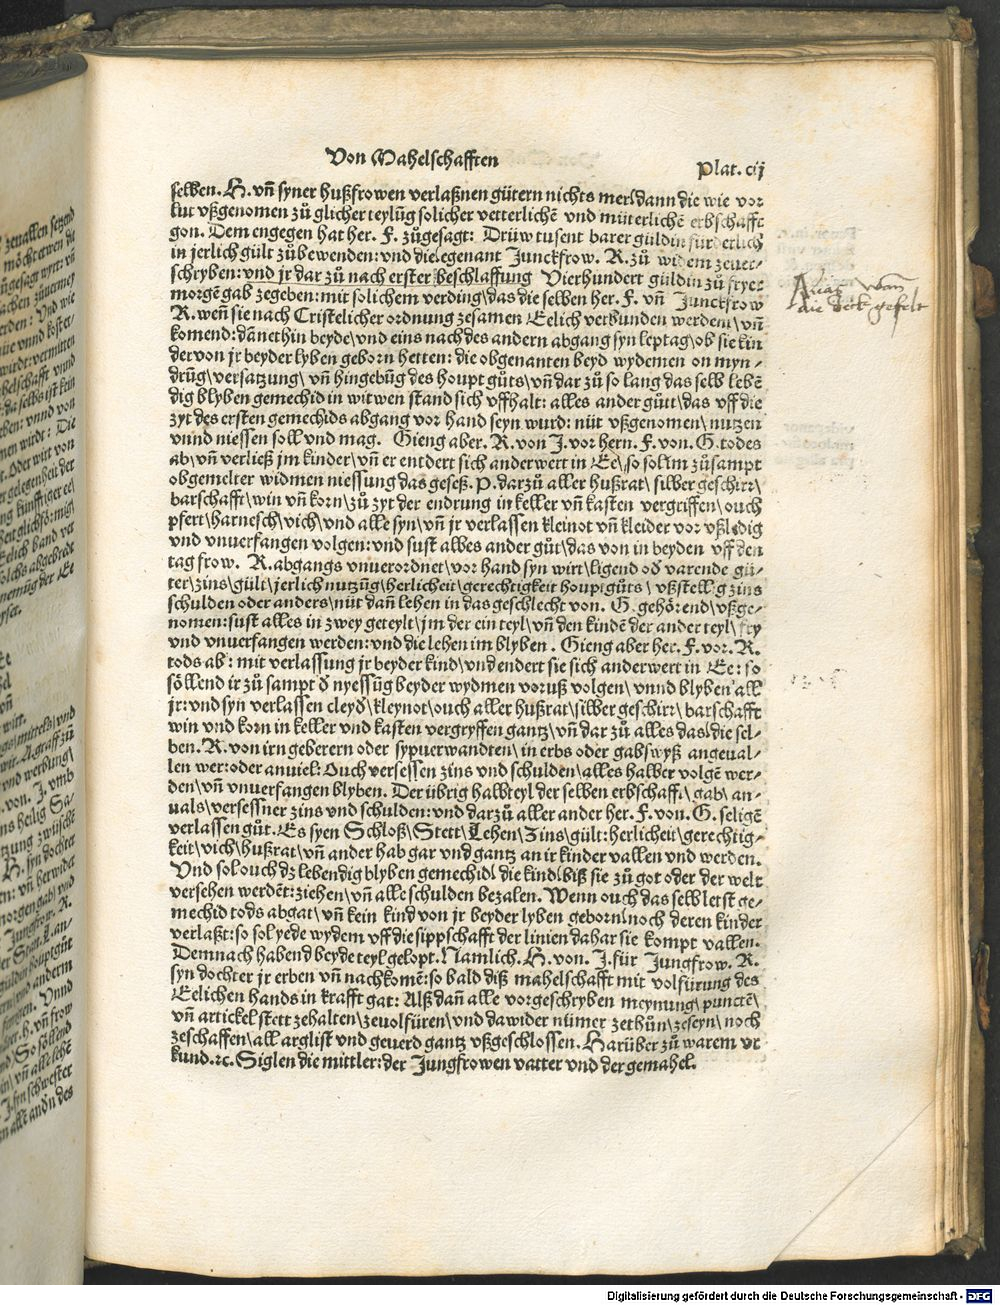 Von Mahelschafften
Plat. cij
selben. H. vñ syner hußfrowen verlaßnen gütern nichts mer/ dann die wie vor
lut vßgenomen zů glicher teylũg solicher vetterlichẽ vnd müterlichẽ erbschafft
gon. Dem engegen hat her. F. zůgesagt: Drüw tusent barer guldin fürderlich
in jerlich gült zůbewenden: vnd die legenant Junckfrow. R. zů widem zeuer⸗
schryben: vnd jr dar zů nach erster beschlaffung Vierhundert guldin zů fryer
morgẽ gab zegeben: mit solichem verding/ das die selben her. F. vñ Junckfrow
R. weñ sie nach Cristelicher ordnung zesamen Eelich verbunden werdem/ vñ
komend: dãnethin beyde/ vnd eins nach des andern abgang syn leptag/ ob sie kin
der von jr beyder lyben geborn hetten: die obgenanten beyd wydemen on myn⸗
drũg/ versatzung/ vñ hingebũg des houpt gůts/ vñ dar zů so lang das selb lebẽ
dig blyben gemechid in witwen stand sich vffhalt: alles ander gůtt/ das vff die
zyt des ersten gemechids abgang vor hand seyn wurd: nüt vßgenomen/ nutzen
vnnd niessen soll vnd mag. Gieng aber. R. von J. vor hern. F. von. G. todes
ab/ vñ verließ jm kinder/ vñ er entdert sich anderwert in Ee/ so sol jm zůsampt
obgemelter widmen niessung das geseß. P. darzů aller hußrat/ silber geschirr/
barschafft/ win vñ korn/ zů zyt der endrung in keller vñ kasten vergriffen/ ouch
pfert/ harnesch/ vich/ vnd alle syn/ vñ jr verlassen kleinot vñ kleider vor vß ledig
vnd vnuerfangen volgen: vnd sust alles ander gůt/ das von in beyden vff den
tag frow. R. abgangs vnuerordnet/ vor hand syn wirt/ ligend oď varende gü⸗
ter/ zins/ gült/ jerlich nutzũg/ herlicheit/ gerechtigkeit houptgůts/ vßstellig zins
schulden oder anders/ nüt dañ lehen in das geschlecht von. G. gehörend/ vßge⸗
nomen: sust alles in zwey geteylt/ jm der ein teyl/ vñ den kindẽ der ander teyl/ fry
vnd vnuerfangen werden: vnd die lehen im blyben. Gieng aber her. F. vor. R.
tods ab: mit verlassung jr beyder kind/ vnd endert sie sich anderwert in Ee: so
söllend ir zů sampt ď nyessũg beyder wydmen voruß volgen/ vnnd blyben all
jr: vnd syn verlassen cleyd/ kleynot/ ouch aller hußrat/ silber geschirr/ barschafft
win vnd korn in keller vnd kasten vergryffen gantz/ vñ dar zů alles das/ die sel⸗
ben. R. von irn geberern oder sypuerwandten/ in erbs oder gabswyß angeual⸗
len wer: oder anuiel: Ouch versessen zins vnd schulden/ alles halber volgẽ wer⸗
den/ vñ vnuerfangen blyben. Der übrig halbteyl der selben erbschafft/ gab/ an⸗
uals/ versessner zins vnd schulden: vnd darzů aller ander her. F. von. G. seligẽ
verlassen gůt. Es syen Schloß/ Stett/ Lehen/ Zins/ gült: herlicheit/ gerechtig⸗
keit/ vich/ hußrat/ vñ ander hab gar vnd gantz an ir kinder vallen vnd werden.
Vnd sol ouch dz lebendig blyben gemechid/ die kind/ biß sie zů got oder der welt
versehen werdẽt: ziehen/ vñ alle schulden bezalen. Wenn ouch das selb letst ge⸗
mechid tods abgat/ vñ kein kind von jr beyder lyben geborn/ noch deren kinder
verlaßt: so sol yede wydem vff die sippschafft der linien dahar sie kompt vallen.
Demnach habend beyde teyl gelopt. Namlich. H. von. J. für Jungfrow. R.
syn dochter jr erben vñ nachkomẽ: so bald diß mahelschafft mit volfürung des
Eelichen hands in krafft gat: Alß dañ alle vorgeschryben meynung/ punctẽ/
vñ artickel stett zehalten/ zeuolfüren/ vnd dawider nümer zethůn/ zeseyn/ noch
zeschaffen/ all arglist vnd geuerd gantz vßgeschlossen. Harüber zů warem vr
kund. ꝛc. Siglen die mittler: der Jungfrowen vatter vnd der gemahel.
wan
die deck gefelt
Digitalisierung gefördert durch die Deutsche Forschungsgemeinschaft - DFG